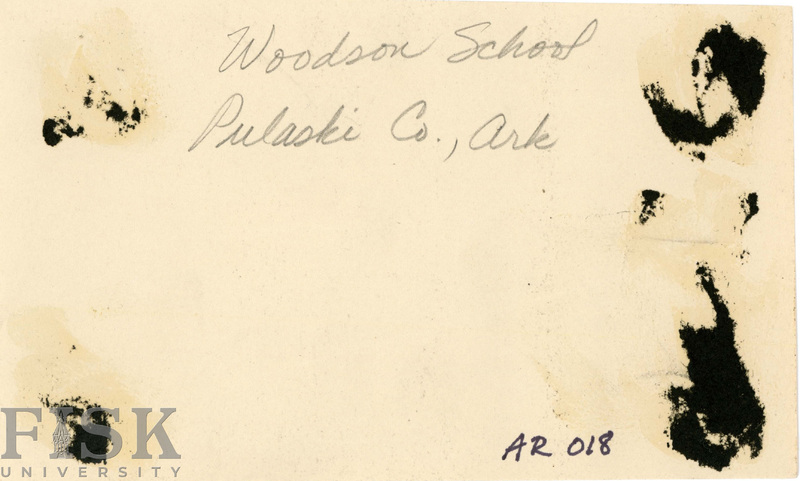 Woodson School
Pulaski Co., Ark
AR 018
FISK
UNIVERSITY